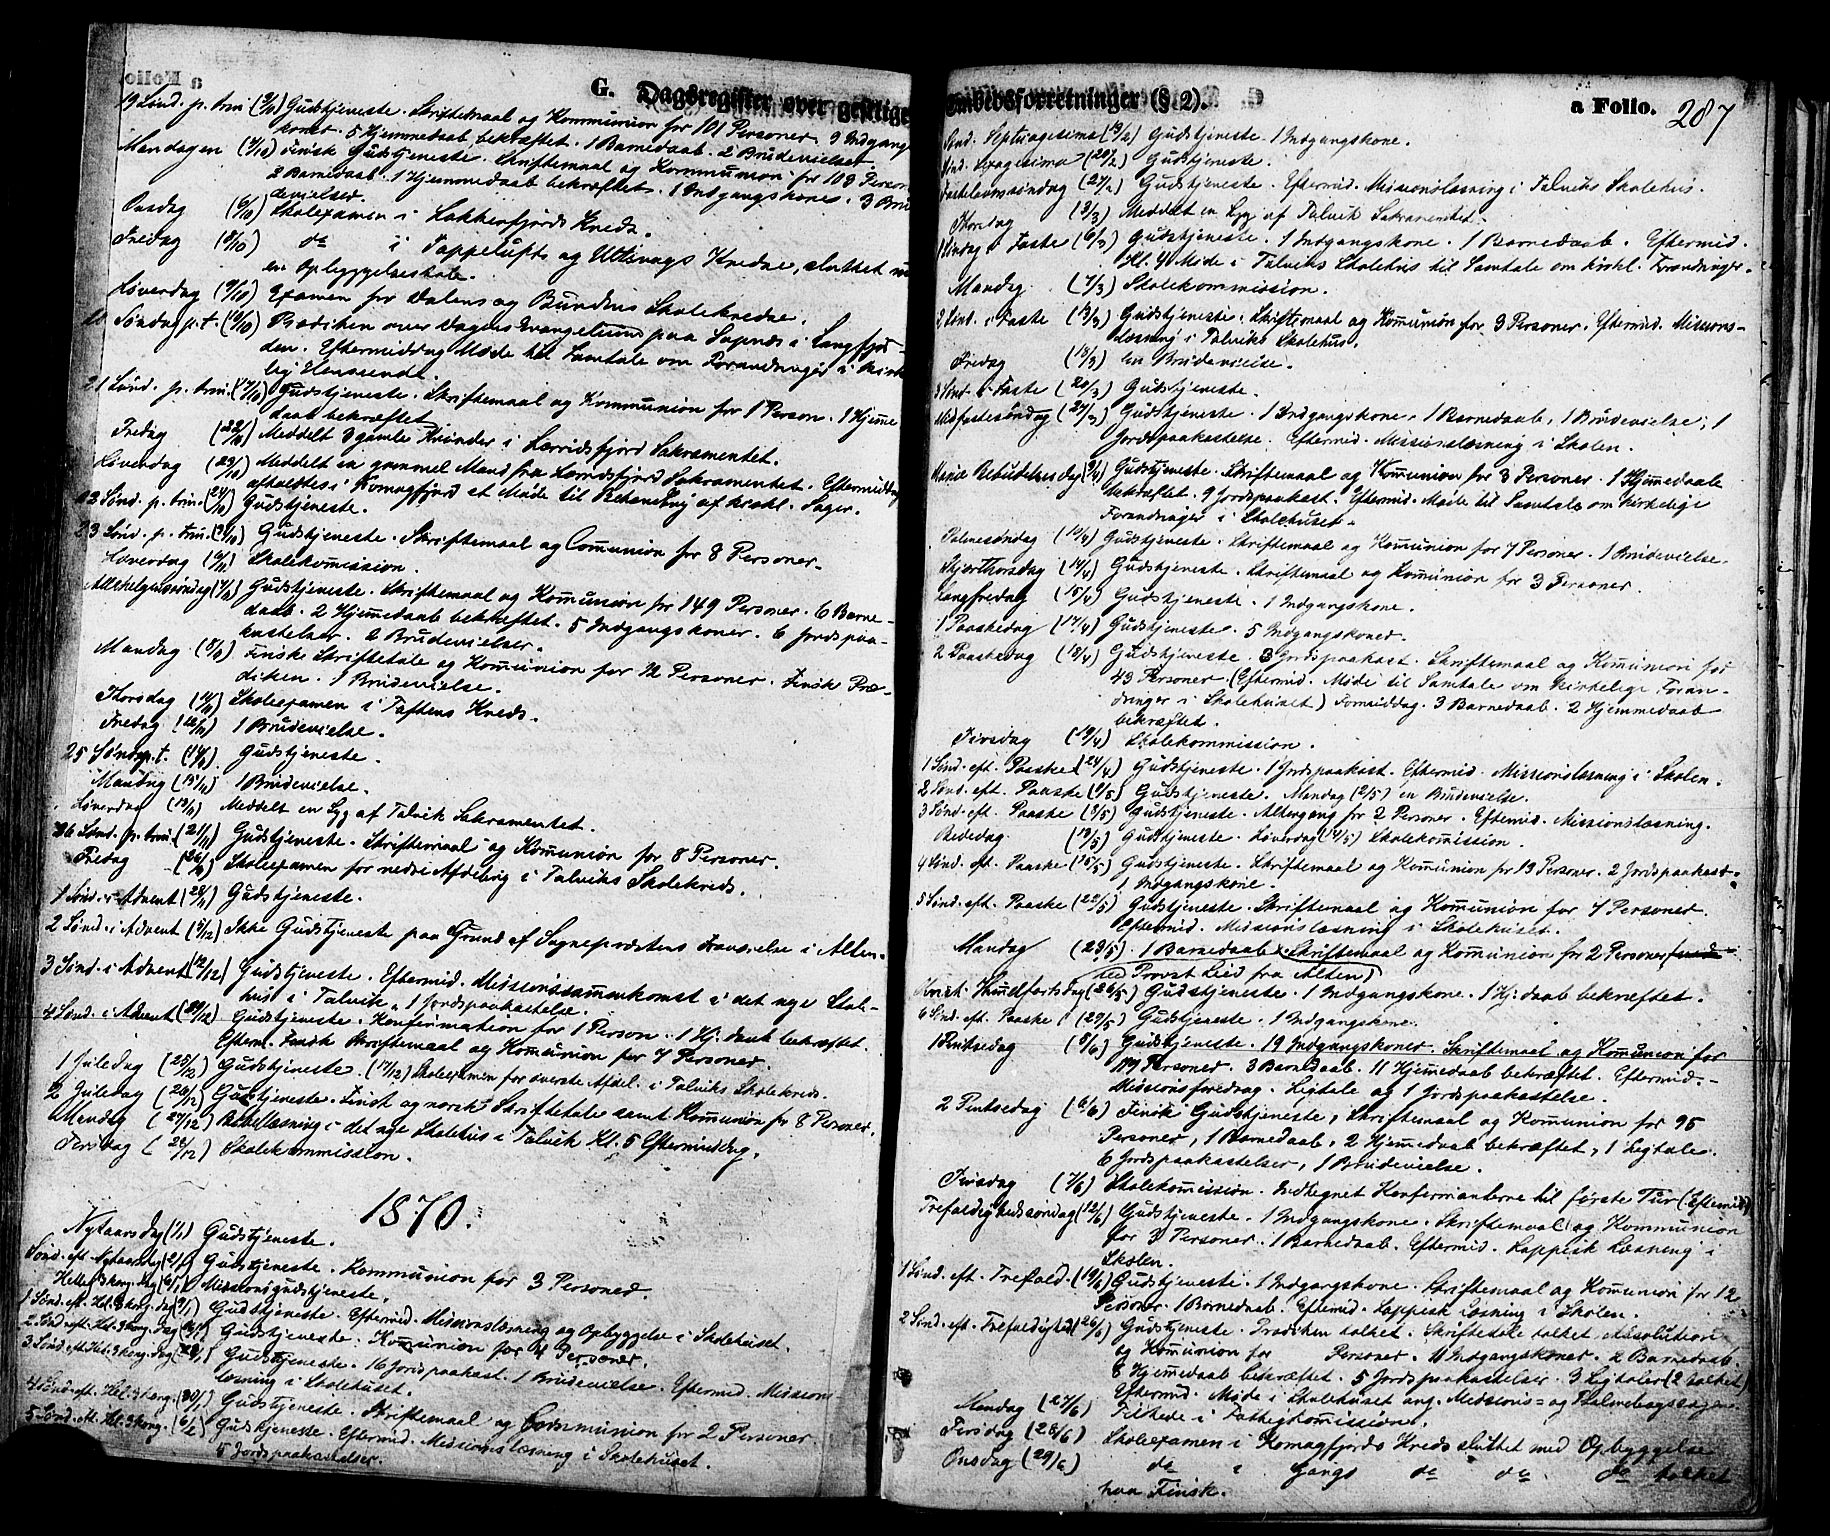 G. Dagsregister over geistlige
19 Sønd. p. trin. (3/10) Gudstjeneste. Skriftemaal og Kommunion for 101 Personer. 9 Indgangs
koner. 5 Hjemmedaab bekræftet. 1 Barnedaab. 2 Brudevielser.
Mandagen (4/10) Finsk Gudstjeneste. Skriftemaal og Kommunion for 108 Person
2 Barnedaab. 1 Hjemmedaab bekræftet. 1 Indgangskone. 3 Bru
devielser.
Onsdag (6/10) Skoleexamen i Lakkerfjords Kreds.
Fredag (8/10) do i Tappelufts og Ulsvaags Kredse, sluttet
en Opbyggelsestale.
Løverdag (9/10) Examen for Dalens og Bundens Skolekredse.
Søndag p. t. (10/10) Prædiken over Dagens Evangelium paa Sopnæs i Langfjor-
den. Eftermiddag Møde til Samtale om Forandringer i kirke
lig Henseende.
21 Sønd. p. trin. (17/10) Gudstjeneste. Skriftemaal og Kommunion for 1 Person. 1 Hjemme
daab bekræftet.
Fredag (22/10) Meddelt 3 gamle Kvinder i Lerridsfjord Sakramentet.
Løverdag (23/10) Meddelt en gammel Mand fra Lerridsfjord Sakramentet. Eftermiddag
afholdtes i Komagfjord et Møde til Behandling af kirkl. Sager.
Sønd. p. trin. (24/10) Gudstjeneste.
23 Sønd. p. trin. (31/10) Gudstjeneste. Skriftemaal og Communion for 8 Personer.
Løverdag (6/11) Skolekomission.
Allehelgensøndag (7/11) Gudstjeneste. Skriftemaal og Komunion for 149 Personer. 6 Barne-
daab. 2 Hjemmedaab bekræftet. 5 Indgangskoner. 6 Jordspaa-
kastelser. 2 Brudevielser.
Mandag (8/11) Finske Skriftetale og Komunion for 12 Personer. Finsk Præ-
diken. 1 Brudevielse.
Thorsdag (11/11) Skoleexamen i Taftens Kreds.
Fredag (12/11) 1 Brudevielse.
25 Søndag p. t. (14/11) Gudstjeneste.
Mandag (15/11) 1 Brudevielse.
Løverdag Meddelt en Syg af Talvik Sakramentet.
26 Sønd. p. trin. (21/11) Gudstjeneste. Skriftemaal og Komunion for 8 Personer.
Fredag (26/11) Skoleexamen for nedre Afdeling i Talviks Skolekreds.
1 Sønd. i Advent (28/11) Gudstjeneste.
2 Sønd. i Advent (5/12) Ikke Gudstjeneste paa Grund af Sognepræstens Fravælse i Alten.
3 Sønd. i Advent (12/12) Gudstjeneste. Eftermid. Missionssammenkomst i det nye Skole-
hus i Talvik. 1 Jordspaakastelse.
4 Sønd. i Advent (20/12) Gudstjeneste. Konfirmation for 1 Person. 1 Hj. daab bekræftet.
Efterm. Finsk Skriftemaal og Komunion for 7 Personer.
1 Juledag (25/12) Gudstjeneste. (17/12) Skoleexamen for øverste Afdel. i Talviks Skolekreds.
2 Juledag (26/12) Gudstjeneste. Finsk og norsk Skriftetale samt Komunion for 8 Personer.
Mandag (27/12) Bibellæsning i det nye Skolehus i Talvik Kl. 5 Eftermiddag.
Tirsdag (28/12) Skolekommission.
1870.
Nytaarsdag (1/1) Gudstjeneste.
Sønd. eft. Nytaarsdag (2/1) Gudstjeneste. Kommunion for 3 Personer.
Hellig 3 kong. dag (6/1) Missionsgudstjeneste.
1 Sønd. eft. Hel. 3 kong. dag (9/1) Gudstjeneste. Eftermid. Missionslæsning og Opbyggelse i Skolehuset.
2 Sønd. eft. Hel. 3 kong. dag (16/1) Gudstjeneste. Komunion for 4 Personer.
3 Sønd. eft. Hel. 3 kong. dag (23/1) Gudstjeneste. 16 Jordspaakast. 1 Brudevielse. Eftermid. Missions
læsning i Skolehuset.
4 Sønd. eft. Hel. 3 kong. (30/1) Gudstjeneste. Skriftemaal og Communion for 2 Personer.
5 Sønd. eft. Hel. 3 kong. (6/2) Gudstjeneste. Eftermid. Missionslæsning i Skolehuset.
5 Jordspaakastelser.
Embedsforretninger (§ 2). a Folio. 287
Sønd. Septuagesima (13/2) Gudstjeneste. 1 Indgangskone.
Sønd. Sexagesima (20/2) Gudstjeneste.
Fastelavnssøndag (27/2) Gudstjeneste. Eftermid. Missionslæsning i Talviks Skolehus.
Thorsdag (3/3) Meddelt en Syg af Talvik Sakramentet.
1 Søndag i Faste (6/3) Gudstjeneste. 1 Indgangskone. 1 Barnedaab. Eftermid.
Kl. 4 Møde i Talviks Skolehus til Samtale om kirkl. Forandringer.
Mandag (7/3) Skolekommission.
2 Sønd. i Faste (13/3) Gudstjeneste. Skriftemaal og Komunion for 3 Personer. Eftermid. Missions-
læsning i Talviks Skolehus.
Fredag en Brudevielse.
3 Sønd. i Faste (20/3) Gudstjeneste.
Midfastesøndag (27/3) Gudstjeneste. 1 Indgangskone, 1 Barnedaab, 1 Brudevielse, 1
Jordspaakastelse. Eftermid. Missionslæsning i Skolen.
Mariæ Bebudelsesdag (3/4) Gudstjeneste. Skriftemaal og Komunion for 3 Personer. 1 Hjemmedaab
bekræftet. 9 Jordspaakast. Eftermid. Møde til Samtale om kirkelige
Forandringer i Skolehuset.
Palmesøndag (10/4) Gudstjeneste. Skriftemaal og Komunion for 7 Personer. 1 Brudevielse.
Skjærthorsdag (14/4) Gudstjeneste. Skriftemaal og Komunion for 3 Personer.
Langfredag (15/4) Gudstjeneste. 1 Indgangskone.
1 Paaskedag (17/4) Gudstjeneste. 5 Indgangskoner.
2 Paaskedag (18/4) Gudstjeneste. 3 Jordspaakast. Skriftemaal og Komunion for
43 Personer. (Eftermid. Møde til Samtale om kirkelige Foran-
dringer i Skolehuset) Formiddag. 3 Barnedaab. 2 Hjemmedaab
bekræftet.
Tirsdag (19/4) Skolekommission.
1 Sønd. eft. Paaske (24/4) Gudstjeneste. 1 Jordspaakast. Eftermid. Missionslæsning i Skolen.
2 Sønd. eft. Paaske (1/5) Gudstjeneste. Mandag (2/5) en Brudevielse.
3 Sønd. eft. Paaske (8/5) Gudstjeneste. Altergang for 2 Personer. Eftermid. Missionslæsning.
Bededag (13/5) Gudstjeneste. Løverdag (14/5) Skolekomission.
4 Sønd. eft. Paaske (15/5) Gudstjeneste. Skriftemaal og Komunion for 13 Personer. 2 Jordspaakast.
1 Indgangskone.
5 Sønd. eft. Paaske (22/5) Gudstjeneste. Skriftemaal og Komunion for 7 Personer.
Eftermid. Missionslæsning i Skolehuset.
Mandag (23/5) 1 Barnedaab. Skriftemaal og Komunion for 2 Personer
(ved Provst Lied fra Alten)
Kristi Himmelfartsdag (26/5) Gudstjeneste. 1 Indgangskone. 1 Hj. daab bekræftet.
6 Sønd. eft. Paaske (29/5) Gudstjeneste. 1 Indgangskone.
1 Pintsedag (5/6) Gudstjeneste. 19 Indgangskoner. Skriftemaal og Komunion for
119 Personer. 3 Barnedaab. 11 Hjemmedaab bekræftet. Eftermid.
Missionsforedrag. Ligtale og 1 Jordspaakastelse.
2 Pintsedag (6/6) Finsk Gudstjeneste, Skriftemaal og Komunion for 95
Personer, 1 Barnedaab, 2 Hjemmedaab bekræftet, 1 Ligtale.
6 Jordspaakastelser, 1 Brudevielse.
Tirsdag (7/6) Skolekomission. Indtegnet Konfirmanterne til første Tur (Eftermid)
Trefoldighedssøndag (12/6) Gudstjeneste. 1 Indgangskone. Skriftemaal og Kommunion
for 3 Personer. 1 Barnedaab. Eftermid. Lappisk Læsning i
Skolen.
1 Sønd. eft. Trefold. (19/6) Gudstjeneste. 1 Indgangskone. Skriftemaal og Komunion for 12
Personer. 1 Barnedaab. Eftermid. Lappisk Læsning i Skolen.
2 Sønd. eft. Trefoldighed (26/6) Gudstjeneste. Prædiken tolket. Skriftetale tolket. Absolution
og Komunion for Personer. 11 Indgangskoner. 2 Barnedaab.
8 Hjemmedaab bekræftet. 5 Jordspaakastelser. 3 Ligtaler (2 tolket)
Eftermid. Møde i Skolehuset ang. Missions- og Psalmebogssagen.
Mandag (27/6) Tilstede i Fattigkomissionen.
Tirsdag (28/6) Skoleexamen i Komagfjords Kreds sluttet med Opbyggelse
Onsdag (29/6) do i Gangs do do do tolket
paa Finsk.